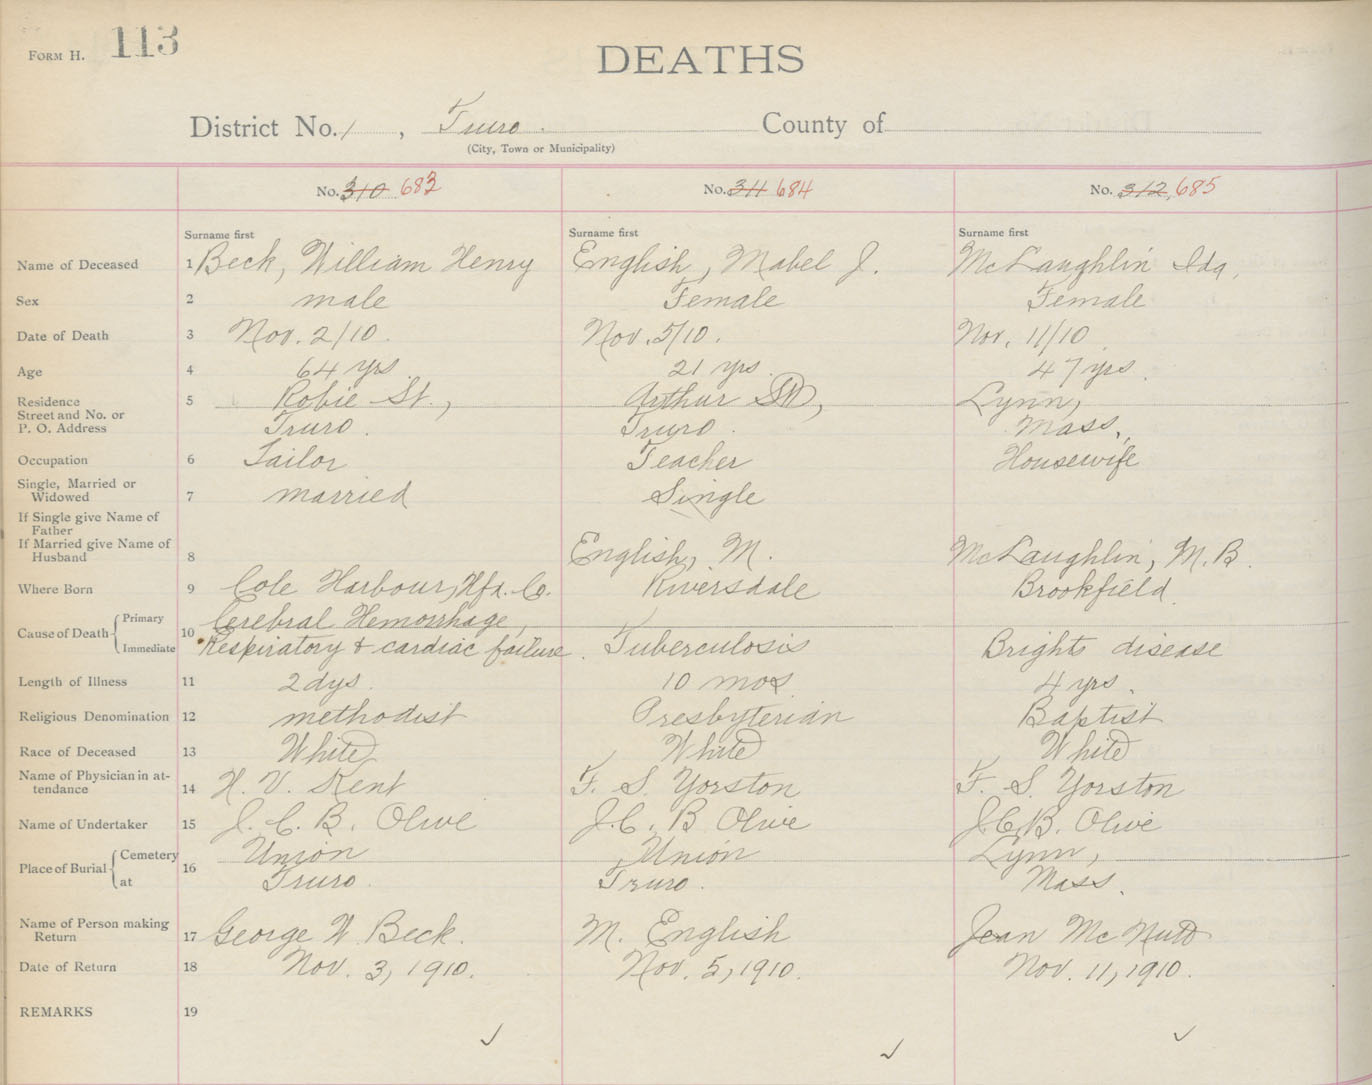 FORM H. 113
DEATHS
District No. 1, Truro. County of
(City, Town or Municipality)
No. 310 683 No. 311 684 No. 312, 685
Surname first Surname first Surname first
Name of Deceased 1 Beck, William Henry English, Mabel J. McLaughlin Ida,
Sex 2 male Female Female
Date of Death 3 Nov. 2/10. Nov. 5/10. Nov. 11/10
Age 4 64 yrs. 21 yrs. 47 yrs.
Residence 5 Robie St., Arthur St, Lynn,
Street and No. or
P. O. Address Truro. Truro. Mass.,
Occupation 6 Tailor Teacher Housewife
Single, Married or
Widowed 7 married Single
If Single give Name of
Father
If Married give Name of
Husband 8 English, M. McLaughlin, M. B.
Where Born 9 Cole Harbour, Hfx. Co. Riversdale Brookfield
Cause of Death Primary Cerebral Hemorrhage,
10
Immediate Respiratory & cardiac failure. Tuberculosis Brights disease
Length of Illness 11 2 dys. 10 mos. 4 yrs.
Religious Denomination 12 methodist Presbyterian Baptist
Race of Deceased 13 White White White
Name of Physician in at-
tendance 14 H. V. Kent F. S. Yorston F. S. Yorston
Name of Undertaker 15 J. C. B. Olive J. C. B Olive J. C. B. Olive
Place of Burial Cemetery 16 Union Union Lynn,
at Truro. Truro. Mass.
Name of Person making
Return 17 George W Beck. M. English Jean McNutt
Date of Return 18 Nov. 3, 1910. Nov. 5, 1910. Nov. 11, 1910.
REMARKS 19